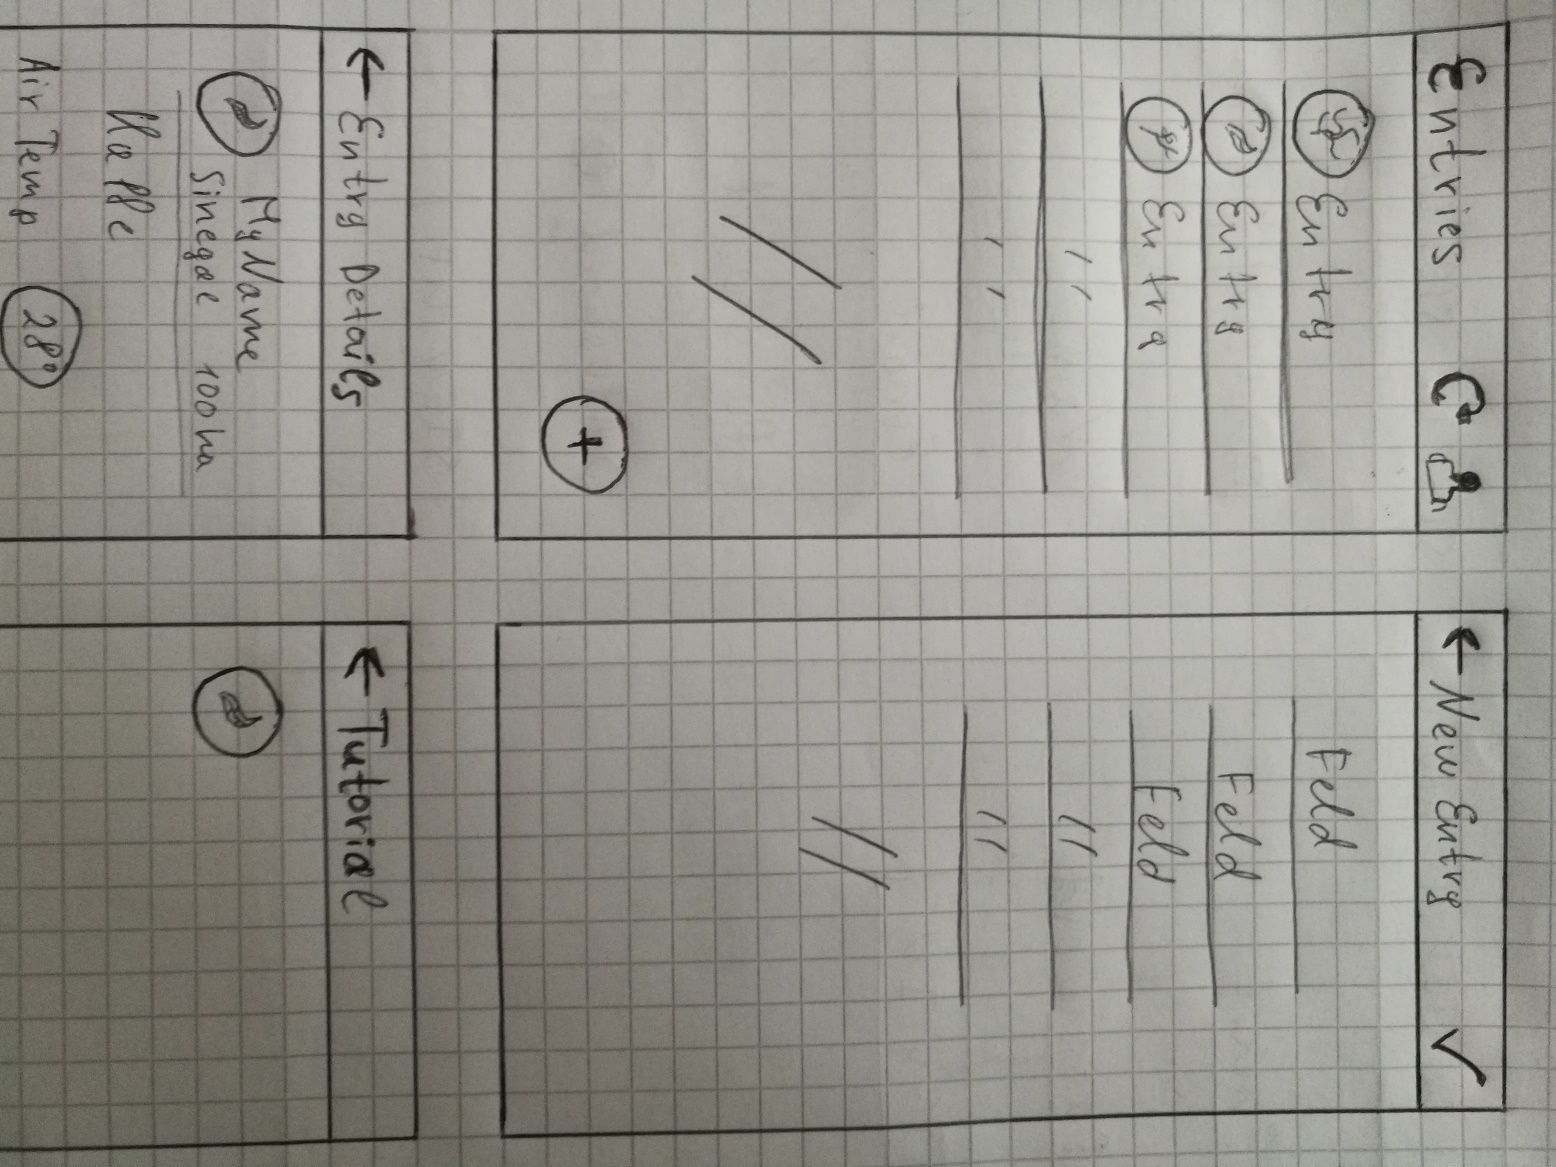 Entries
Entry
Entry
Entry
''
''
+
← New Entry ✓
Feld
Feld
Feld
''
''
← Entry Details
My Name
Sinegal 100 ha
Kaffe
Air Temp 28°
← Tutorial